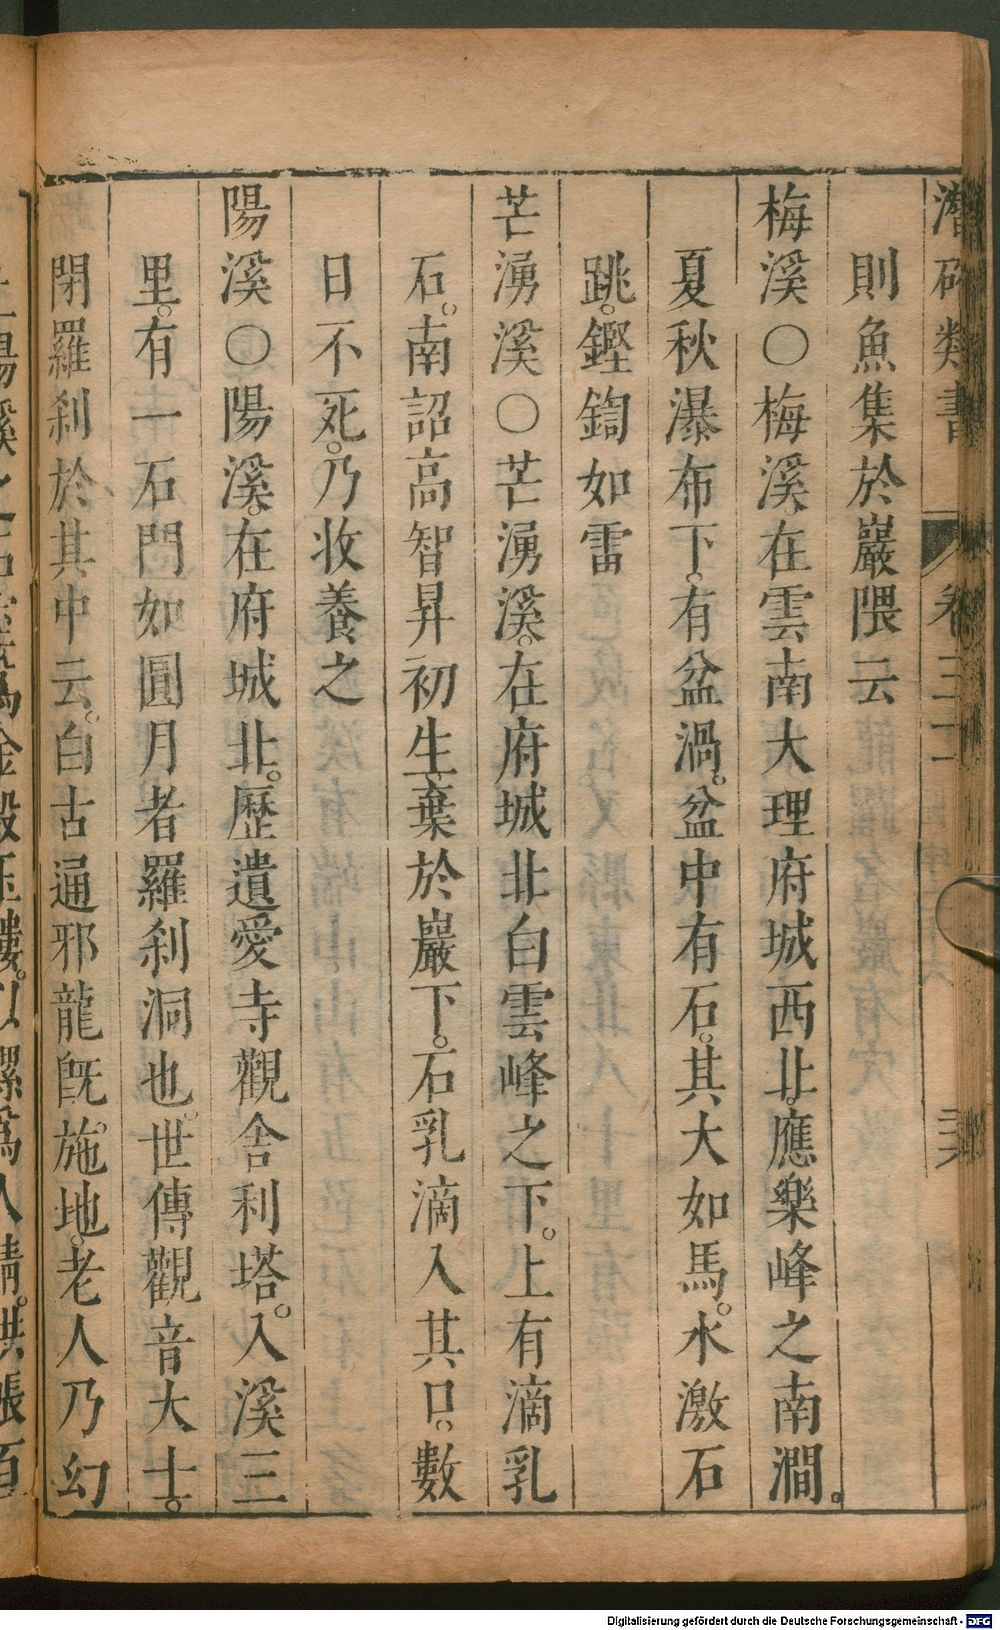 潛確類書 卷三十二
則魚集於巖隈云
梅溪○梅溪。在雲南大理府城西北。應樂峰之南澗。
夏秋瀑布下。有盆渦。盆中有石。其大如馬。水激石
跳。鏗鍧如雷
芒湧溪○芒湧溪。在府城北白雲峰之下。上有滴乳
石。南詔高智昇初生棄於巖下。石乳滴入其口。數
日不死。乃收養之
陽溪○陽溪。在府城北。歷遺愛寺觀舍利塔。入溪三
里。有一石門如圓月者羅剎洞也。世傳觀音大士。
閉羅剎於其中云。白古通邪龍旣施地。老人乃幻
爲金殿玉樓。以螺爲人睛。供張百
Digitalisierung gefördert durch die Deutsche Forschungsgemeinschaft - DFG